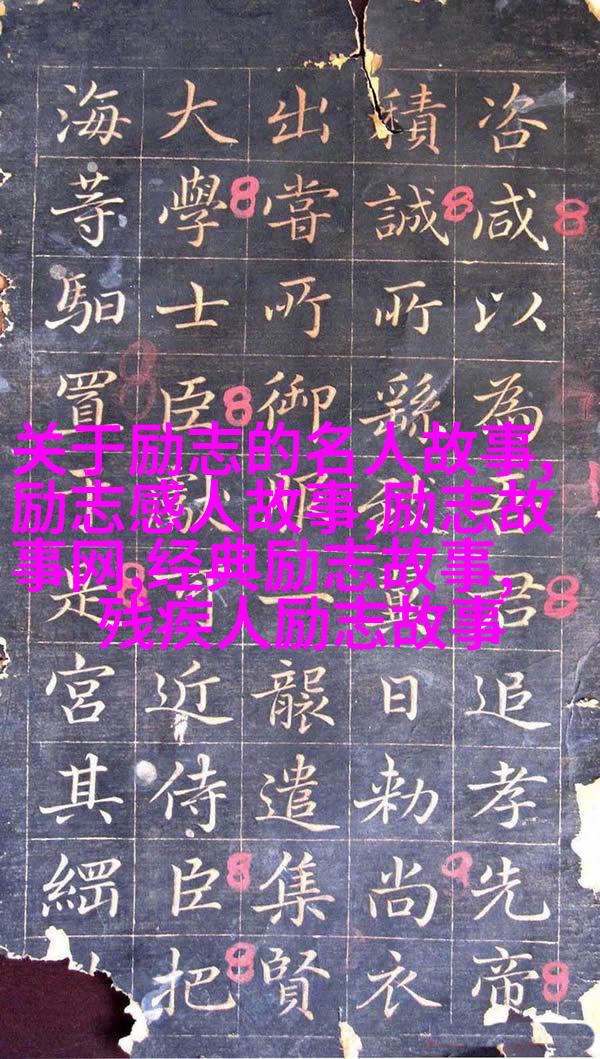 咨咸以為吾君追孝先帝
積誠所繇異日勑尚衣
出甞所御一襲遣集賢
大學士臣近侍臣把
海䓁馹置是宮其
关于励志的名人故事,
励志感人故事,励志故
事网,经典励志故事,
残疾人励志故事
8
8
8
8
8
8
8
9
8
9